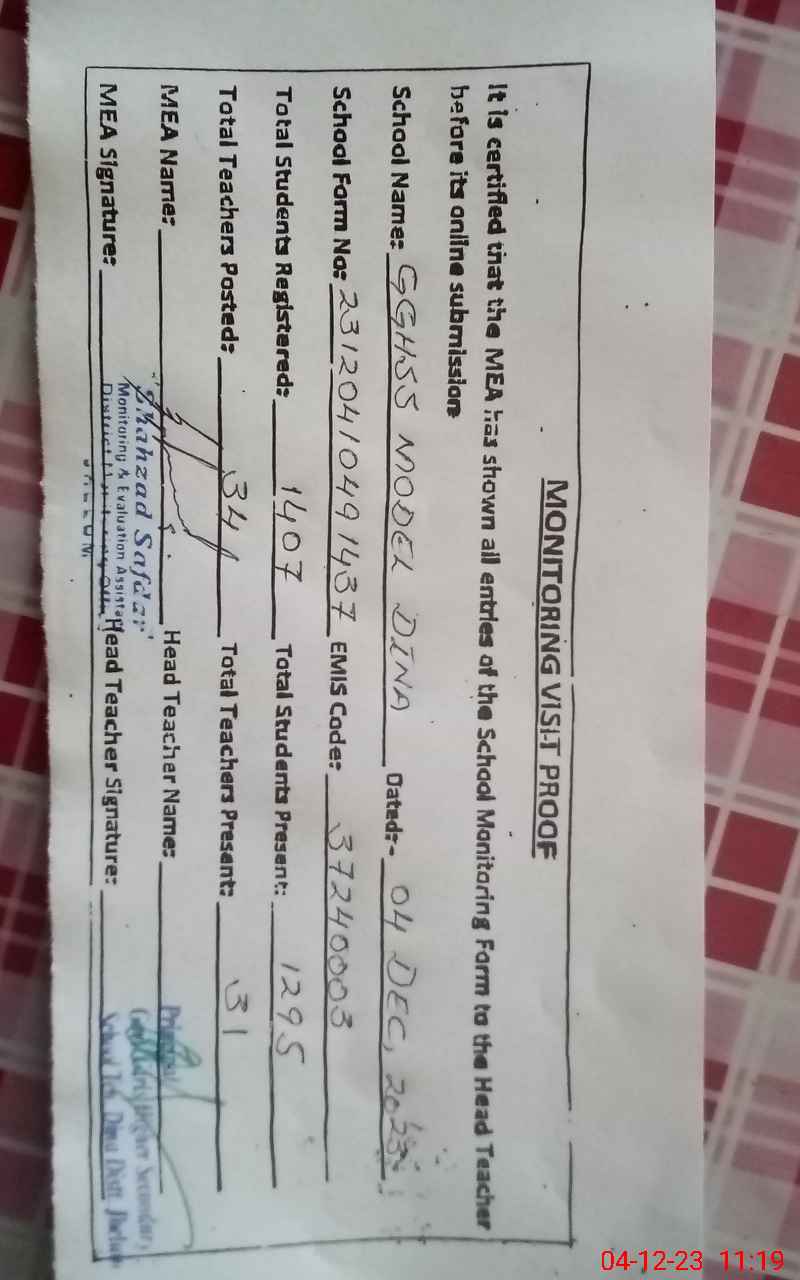 MONITORING VISIT PROOF
It is certified that the MEA has shown all entries of the School Monitoring Form to the Head Teacher
before its online submission
School Name: GGHSS MODEL DINA Dated:- 04 DEC, 2023
School Form No: 23120410491437 EMIS Code: 37240003
Total Students Registered: 1407 Total Students Present: 1295
Total Teachers Posted: 34 Total Teachers Present: 31
MEA Name: Head Teacher Name:
MEA Signature: Head Teacher Signature:
Shahzad Safdar
Monitoring & Evaluation Assistant
Principal
04-12-23 11:19